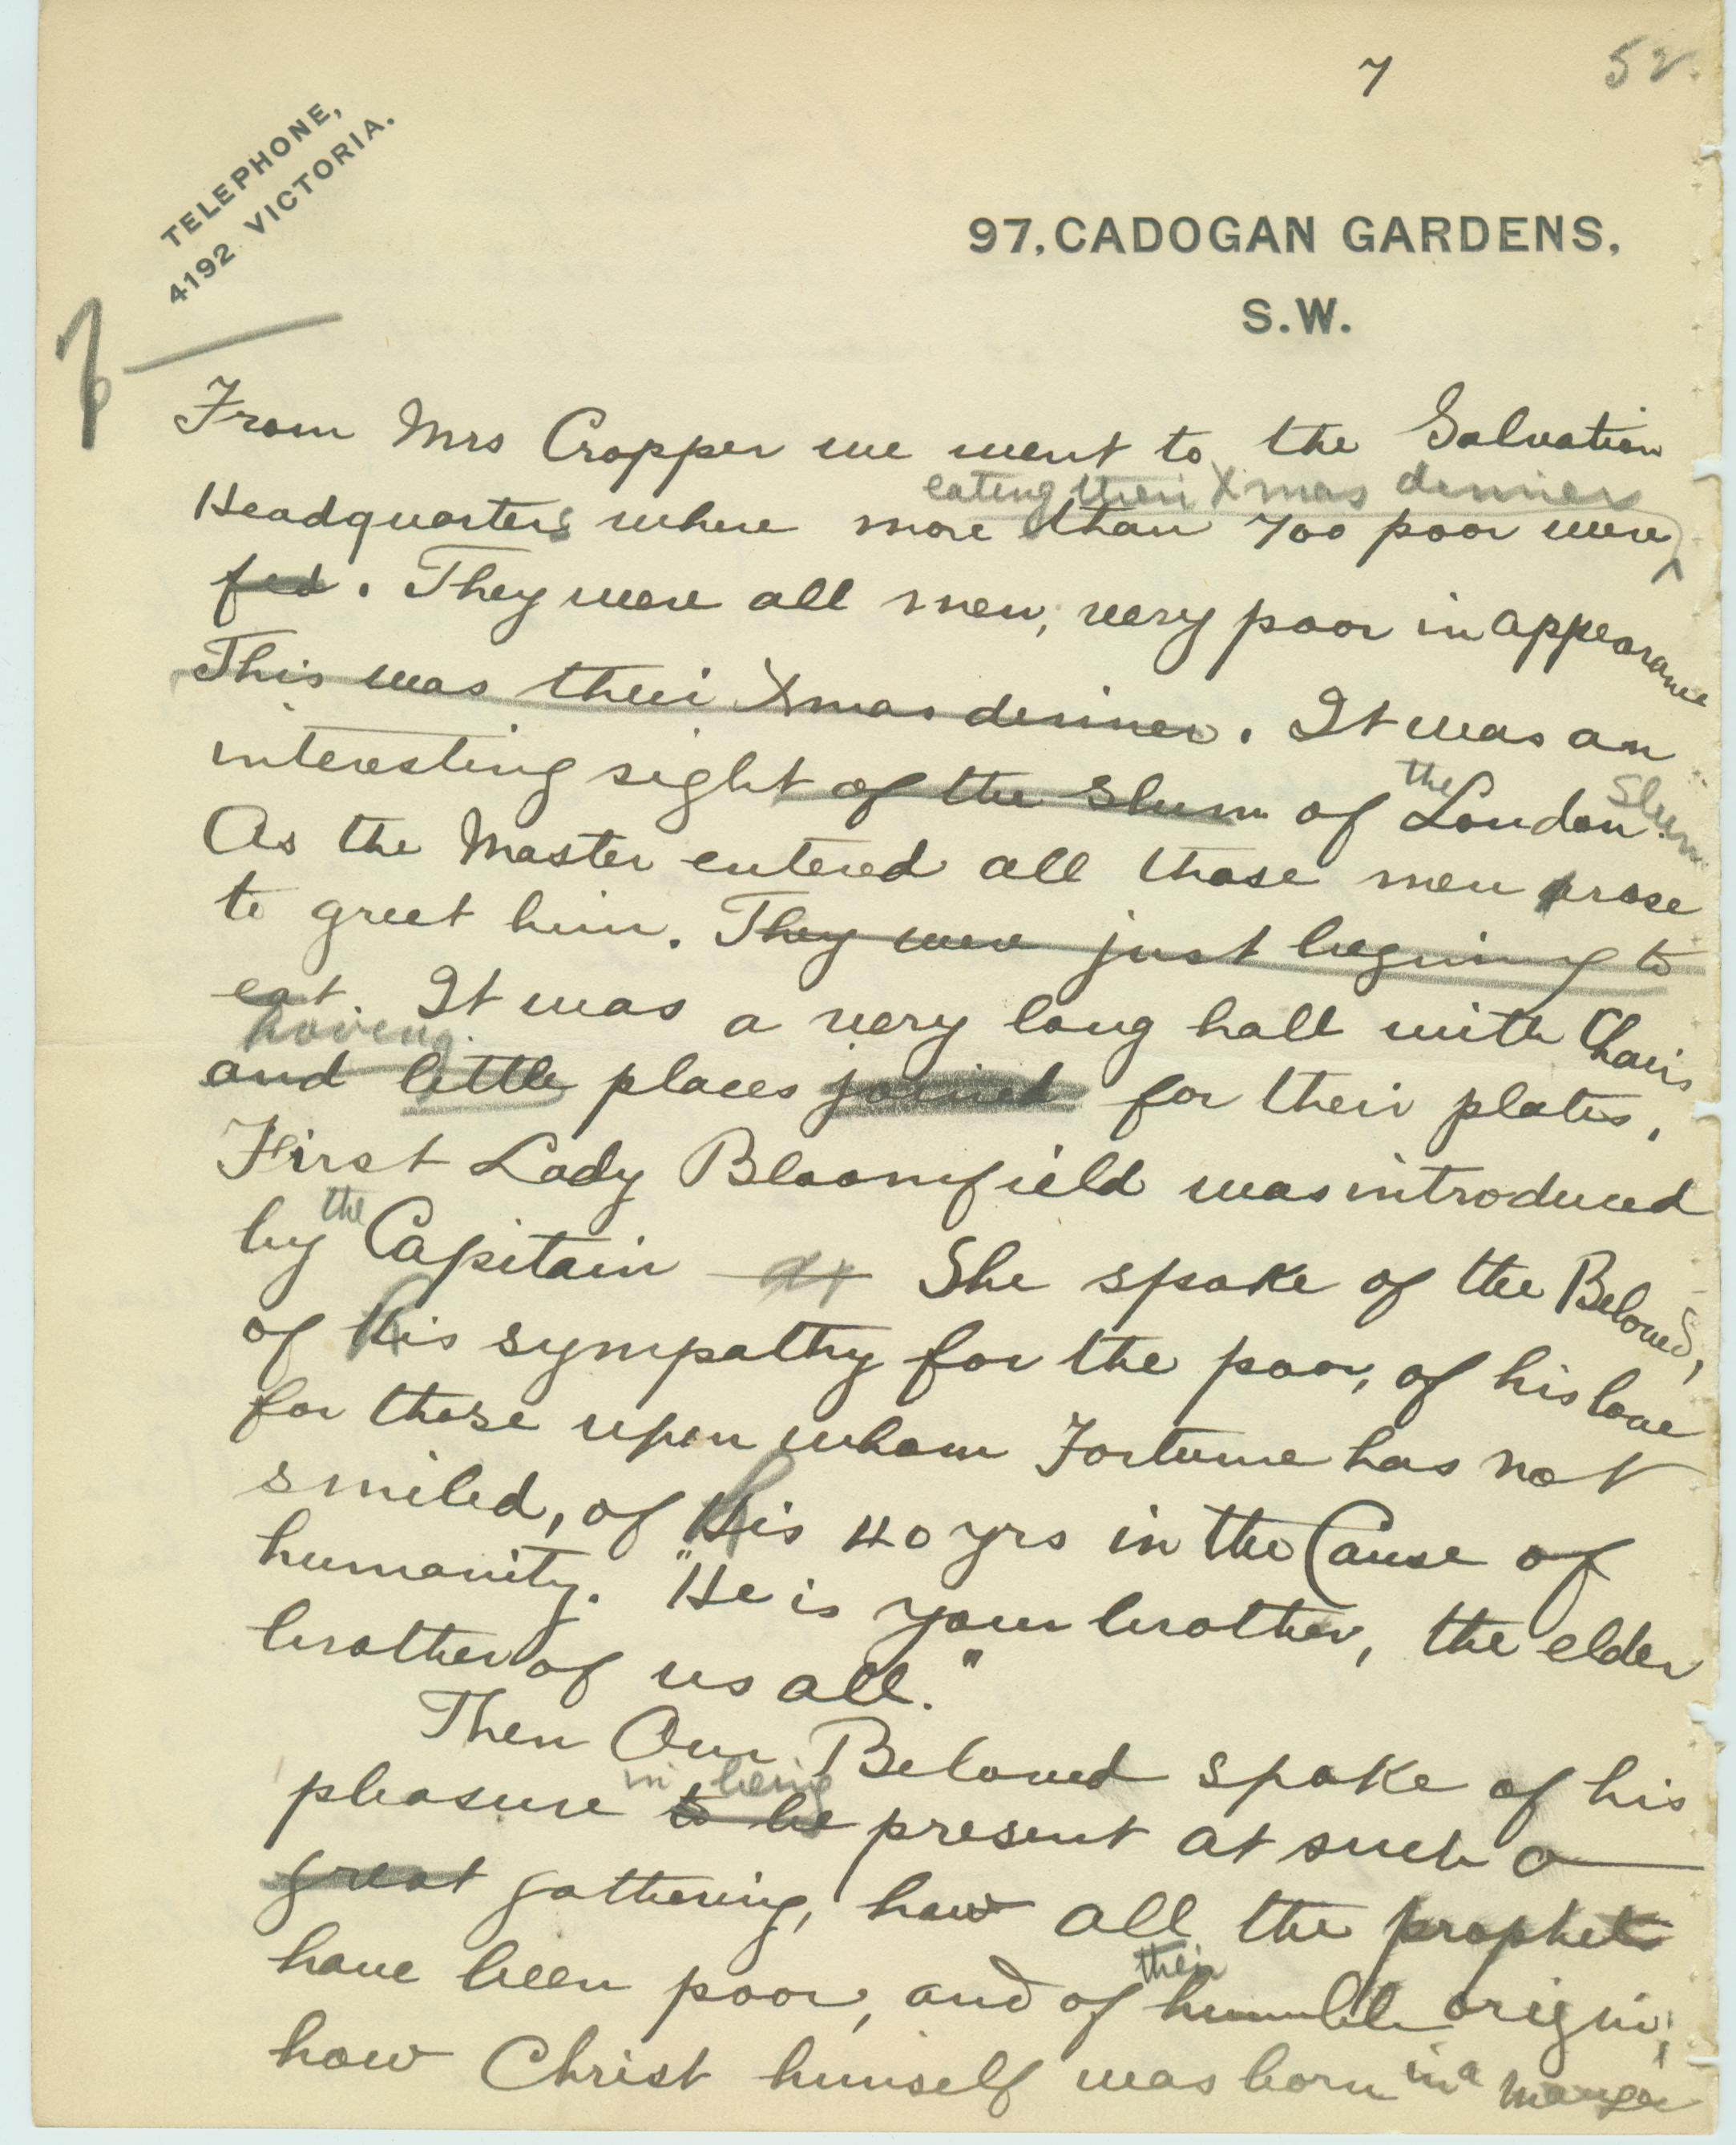 7
52.
TELEPHONE,
4192 VICTORIA.
97, CADOGAN GARDENS,
S.W.
From Mrs Cropper we went to the Salvation
eating their Xmas dinner
Headquarters where more than 700 poor were
fed. They were all men, very poor in appearance
This was their Xmas dinner. It was an
the slum
interesting sight of the slum of London.
As the Master entered all those men arose
to greet him. They were just begining to
eat. It was a very long hall with chairs
having
and little places joined for their plates,
First Lady Bloomfield was introduced
the
by Capitain She spoke of the Beloved,
of his sympathy for the poor, of his love
for those upon whom Fortune has not
smiled, of his 40 yrs in the Cause of
humanity. "He is your brother, the elder
brother of us all."
Then Our Beloved spoke of his
in being
pleasure to be present at such a
great gathering, how all the prophets
their
have been poor, and of humble origin;
how Christ himself was born in a manger